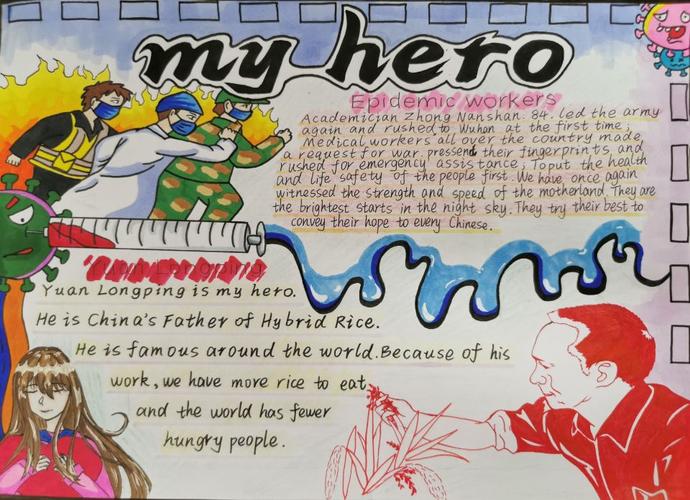 my hero
Epidemic workers
Academician Zhong Nanshan. 84. led the army
again and rushed to Wuhan at the first time;
Medical workers all over the country made
a request for war. pressend their fingerprints and
rushed for emergency assistance; Toput the health
and life safety of the people first. We have once again
witnessed the strength and speed of the motherland. They are
the brightest starts in the night sky. They try their best to
convey their hope to every Chinese.
Yuan Longping
Yuan Longping is my hero.
He is China's Father of Hybrid Rice.
He is famous around the world. Because of his
work, we have more rice to eat
and the world has fewer
hungry people.